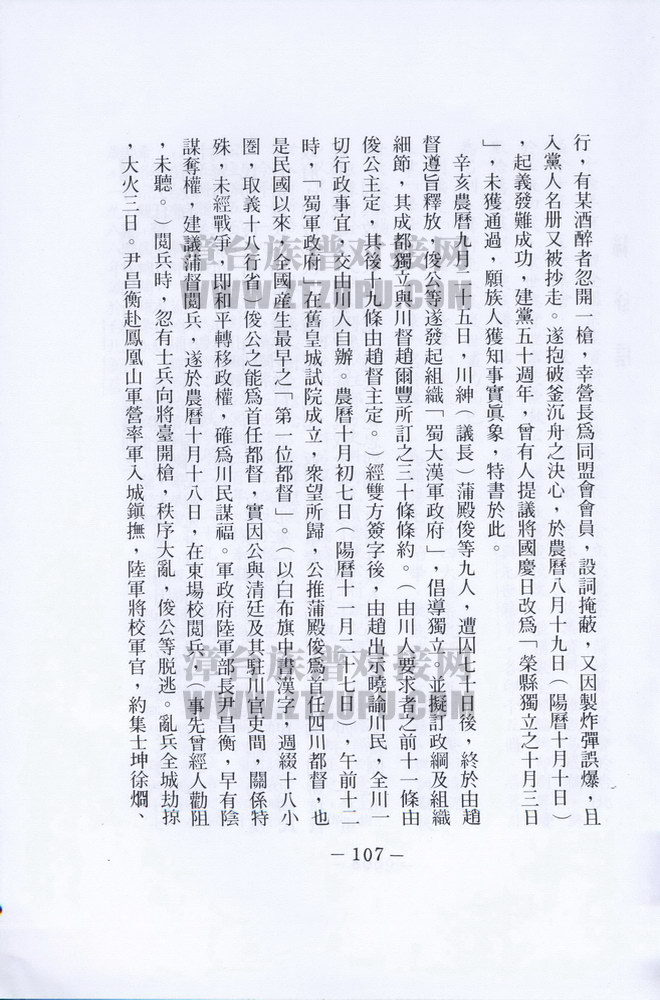 行，有某酒醉者忽開一槍，幸營長爲同盟會會員，設詞掩蔽，又因製炸彈誤爆，且
入黨人名册又被抄走。遂抱破釜沉舟之決心，於農曆八月十九日（陽曆十月十日）
，起義發難成功，建黨五十週年，曾有人提議將國慶日改爲「榮縣獨立之十月三日
」，未獲通過，願族人獲知事實眞象，特書於此。
辛亥農曆九月二十五日，川紳（議長）蒲殿俊等九人，遭囚七十日後，終於由趙
督遵旨釋放，俊公等遂發起組織「蜀大漢軍政府」，倡導獨立。並擬訂政綱及組織
細節，其成都獨立與川督趙爾豐所訂之三十條條約。（由川人要求者之前十一條由
俊公主定，其後十九條由趙督主定。）經雙方簽字後，由趙出示曉諭川民，全川一
切行政事宜，交由川人自辦。農曆十月初七日（陽曆十一月二十七日），午前十二
時，「蜀軍政府」在舊皇城試院成立，衆望所歸，公推蒲殿俊爲首任四川都督，也
是民國以來，全國産生最早之「第一位都督」。（以白布旗中書漢字，週綴十八小
圈，取義十八行省）俊公之能爲首任都督，實因公與清廷及其駐川官吏間，關係特
殊，未經戰爭，即和平轉移政權，確爲川民謀福。軍政府陸軍部長尹昌衡，早有陰
謀奪權，建議蒲督閱兵，遂於農曆十月十八日，在東場校閱兵，（事先曾經人勸阻
，未聽。）閱兵時，忽有士兵向將臺開槍，秩序大亂，俊公等脱逃。亂兵全城劫掠
，大火三日。尹昌衡赴鳳凰山軍營率軍入城鎭撫，陸軍將校軍官，約集士坤徐烱、
－107－
漳台族谱对接网
WWW.ZTZUPU.COM
漳台族谱对接网
WWW.ZTZUPU.COM